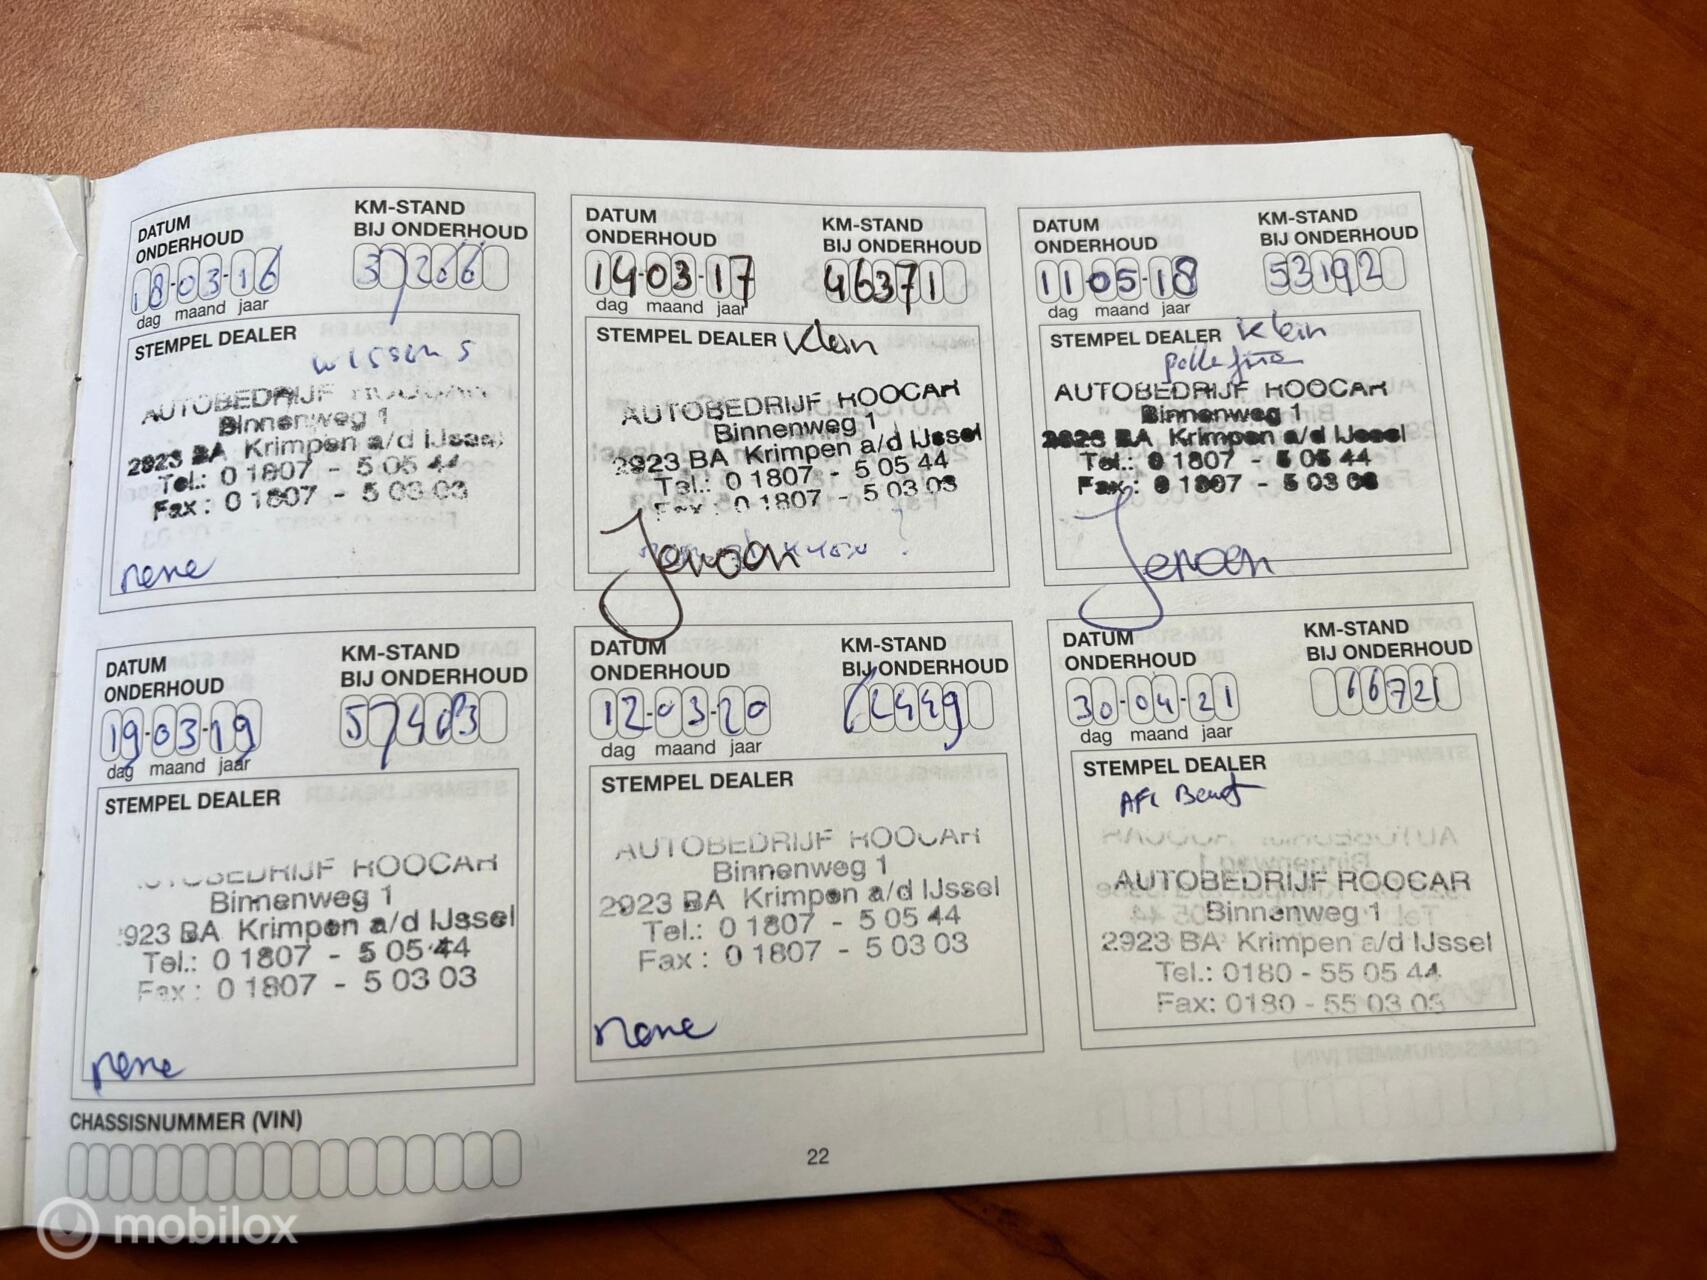 DATUM
ONDERHOUD
KM-STAND
BIJ ONDERHOUD
18-03-16
37266
dag maand jaar
STEMPEL DEALER
AUTOBEDRIJF ROOCAR
Binnenweg 1
2923 BA Krimpen a/d IJssel
Tel.: 0 1807 - 5 05 44
Fax : 0 1807 - 5 03 03
rene
DATUM
ONDERHOUD
KM-STAND
BIJ ONDERHOUD
14-03-17
46371
dag maand jaar
STEMPEL DEALER Klein
AUTOBEDRIJF ROOCAR
Binnenweg 1
2923 BA Krimpen a/d IJssel
Tel.: 0 1807 - 5 05 44
Fax : 0 1807 - 5 03 03
Jeroen
DATUM
ONDERHOUD
KM-STAND
BIJ ONDERHOUD
11-05-18
53192
dag maand jaar
STEMPEL DEALER Klein
AUTOBEDRIJF ROOCAR
Binnenweg 1
2923 BA Krimpen a/d IJssel
Tel.: 0 1807 - 5 05 44
Fax : 0 1807 - 5 03 03
Jeroen
DATUM
ONDERHOUD
KM-STAND
BIJ ONDERHOUD
19-03-19
dag maand jaar
STEMPEL DEALER
AUTOBEDRIJF ROOCAR
Binnenweg 1
2923 BA Krimpen a/d IJssel
Tel.: 0 1807 - 5 05 44
Fax : 0 1807 - 5 03 03
rene
DATUM
ONDERHOUD
KM-STAND
BIJ ONDERHOUD
12-03-20
62449
dag maand jaar
STEMPEL DEALER
AUTOBEDRIJF ROOCAR
Binnenweg 1
2923 BA Krimpen a/d IJssel
Tel.: 0 1807 - 5 05 44
Fax : 0 1807 - 5 03 03
rene
DATUM
ONDERHOUD
KM-STAND
BIJ ONDERHOUD
30-04-21
66721
dag maand jaar
STEMPEL DEALER
AUTOBEDRIJF ROOCAR
Binnenweg 1
2923 BA Krimpen a/d IJssel
Tel.: 0180 - 55 05 44
Fax: 0180 - 55 03 03
CHASSISNUMMER (VIN)
22
mobilox